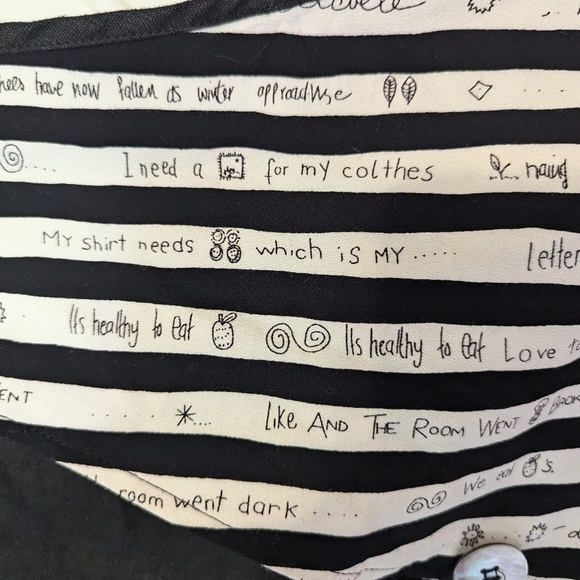 have now fallen as winter
I need a for my colthes
My shirt needs which is MY ..... letter
Its healthy to eat Its healthy to eat Love
like AND THE ROOM WENT
We eat s.
room went dark ....